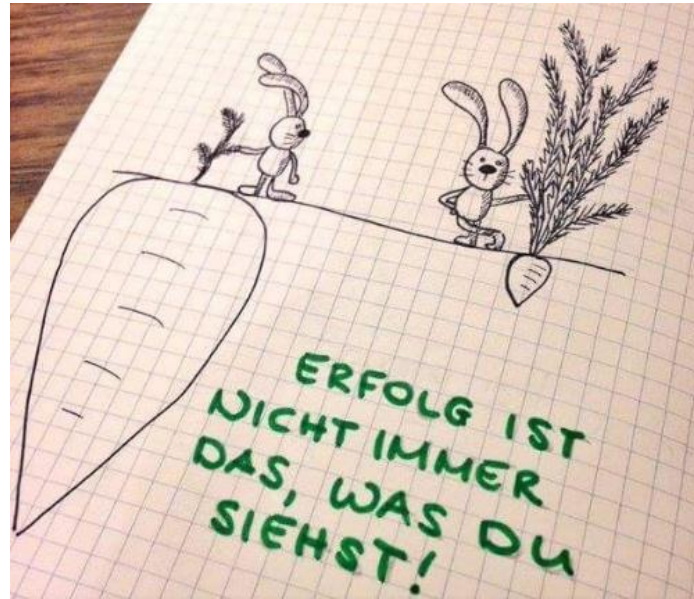 ERFOLG IST
NICHT IMMER
DAS, WAS DU
SIEHST!